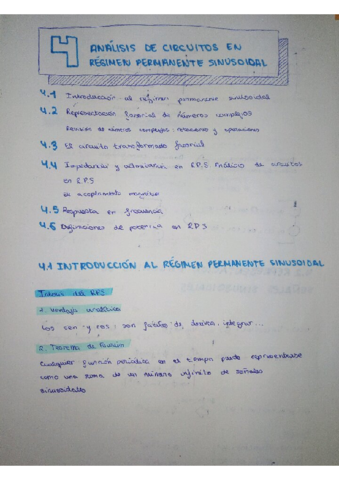 4 ANÁLISIS DE CIRCUITOS EN
RÉGIMEN PERMANENTE SINUSOIDAL
4.1 Introducción al régimen permanente sinusoidal
4.2 Representación fasorial de números complejos
Revisión de números complejos: notaciones y operaciones
4.3 El circuito transformado fasorial
4.4 Impedancia y admitancia en R.P.S Análisis de circuitos
en R.P.S
acoplamiento magnético
4.5 Respuesta en frecuencia
4.6 Definiciones de potencia en R.P.S
4.1 INTRODUCCIÓN AL RÉGIMEN PERMANENTE SINUSOIDAL
Interés del RPS
1. Ventaja analítica
Los sen y cos son fáciles de derivar, integrar...
2. Teorema de Fourier
Cualquier función periódica en el tiempo puede representarse
como una suma de un número infinito de señales
sinusoidales